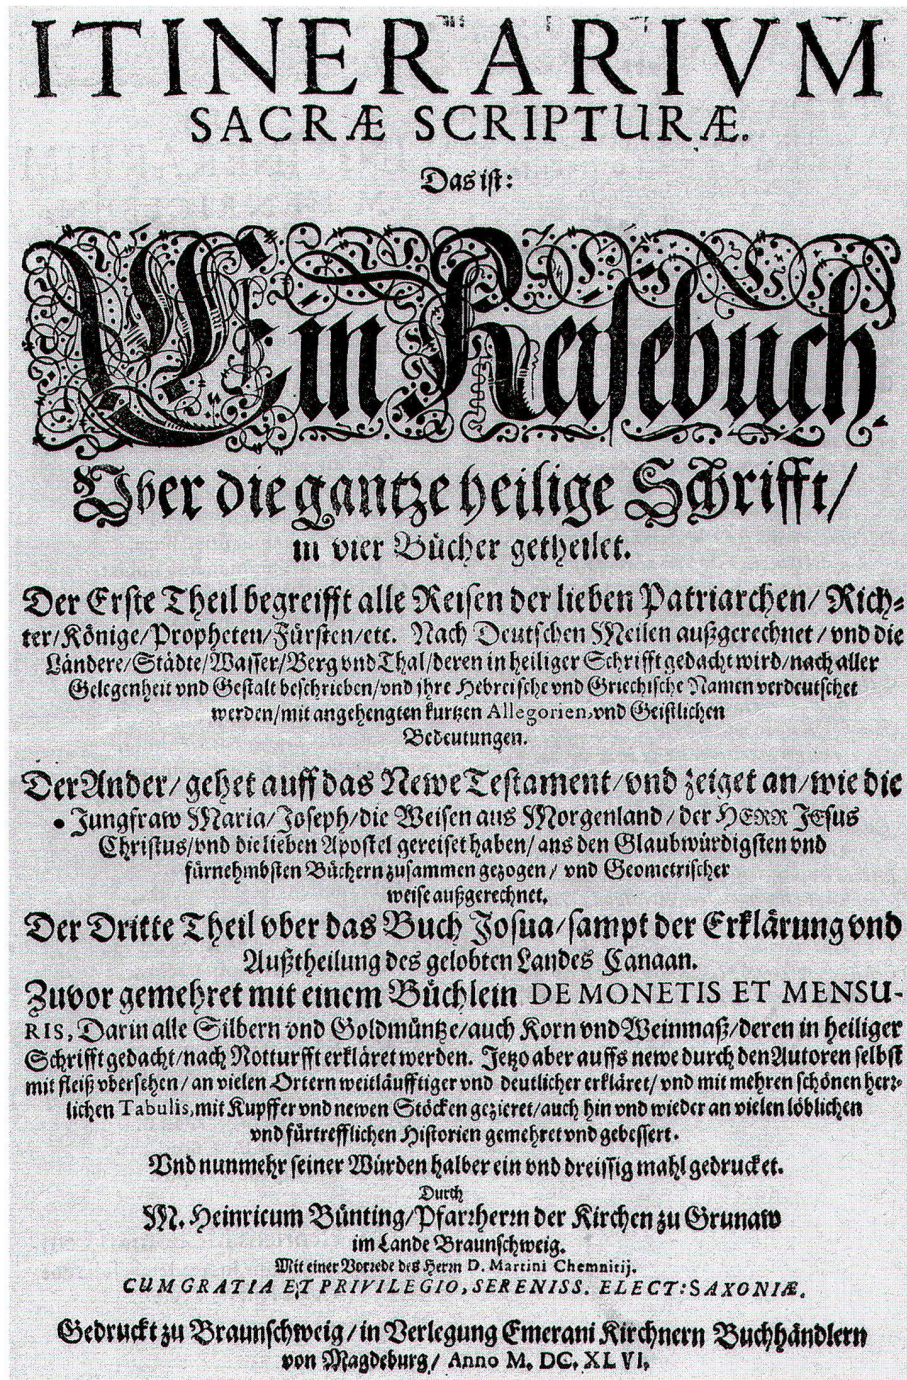 ITINERARIVM
SACRÆ SCRIPTURÆ.
Das ist:
Ein Reisebuch
Vber die gantze heilige Schrifft/
in vier Bücher getheilet.
Der Erste Theil begreifft alle Reisen der lieben Patriarchen/ Rich-
ter/Könige/Propheten/Fürsten/etc. Nach Deutschen Meilen außgerechnet/vnd die
Ländere/Städte/Wasser/Berg vnd Thal/deren in heiliger Schrifft gedacht wird/nach aller
Gelegenheit vnd Gestalt beschrieben/vnd jhre Hebreische vnd Griechische Namen verdeutschet
werden/mit angehengten kurtzen Allegorien, vnd Geistlichen
Bedeutungen.
Der Ander/ gehet auff das Newe Testament/vnd zeiget an/wie die
Jungfraw Maria/Joseph/die Weisen aus Morgenland/der HERR JEsus
Christus/vnd die lieben Apostel gereiset haben/ans den Glaubwürdigsten vnd
fürnehmbsten Büchern zusammen gezogen/ vnd Geometrischer
weise außgerechnet.
Der Dritte Theil vber das Buch Josua/sampt der Erklärung vnd
Außtheilung des gelobten Landes Canaan.
Zuvor gemehret mit einem Büchlein DE MONETIS ET MENSU-
RIS, Darin alle Silbern vnd Goldmüntze/auch Korn vnd Weinmaß/deren in heiliger
Schrifft gedacht/nach Notturfft erkläret werden. Jetzo aber auffs newe durch den Autoren selbst
mit fleiß vbersehen/an vielen Ortern weitläufftiger vnd deutlicher erkläret/vnd mit mehren schönen hertz-
lichen Tabulis, mit Kupffer vnd newen Stöcken gezieret/auch hin vnd wieder an vielen löblichen
vnd fürtrefflichen Historien gemehret vnd gebessert.
Vnd nunmehr seiner Würden halber ein vnd dreissig mahl gedrucket.
Durch
M. Heinricum Bünting/Pfarrherrn der Kirchen zu Grunaw
im Lande Braunschweig.
Mit einer Vorrede des Herrn D. Martini Chemnitij.
CUM GRATIA ET PRIVILEGIO, SERENISS. ELECT: SAXONIÆ.
Gedruckt zu Braunschweig/in Verlegung Emerani Kirchnern Buchhändlern
von Magdeburg/ Anno M. DC. XLVI.